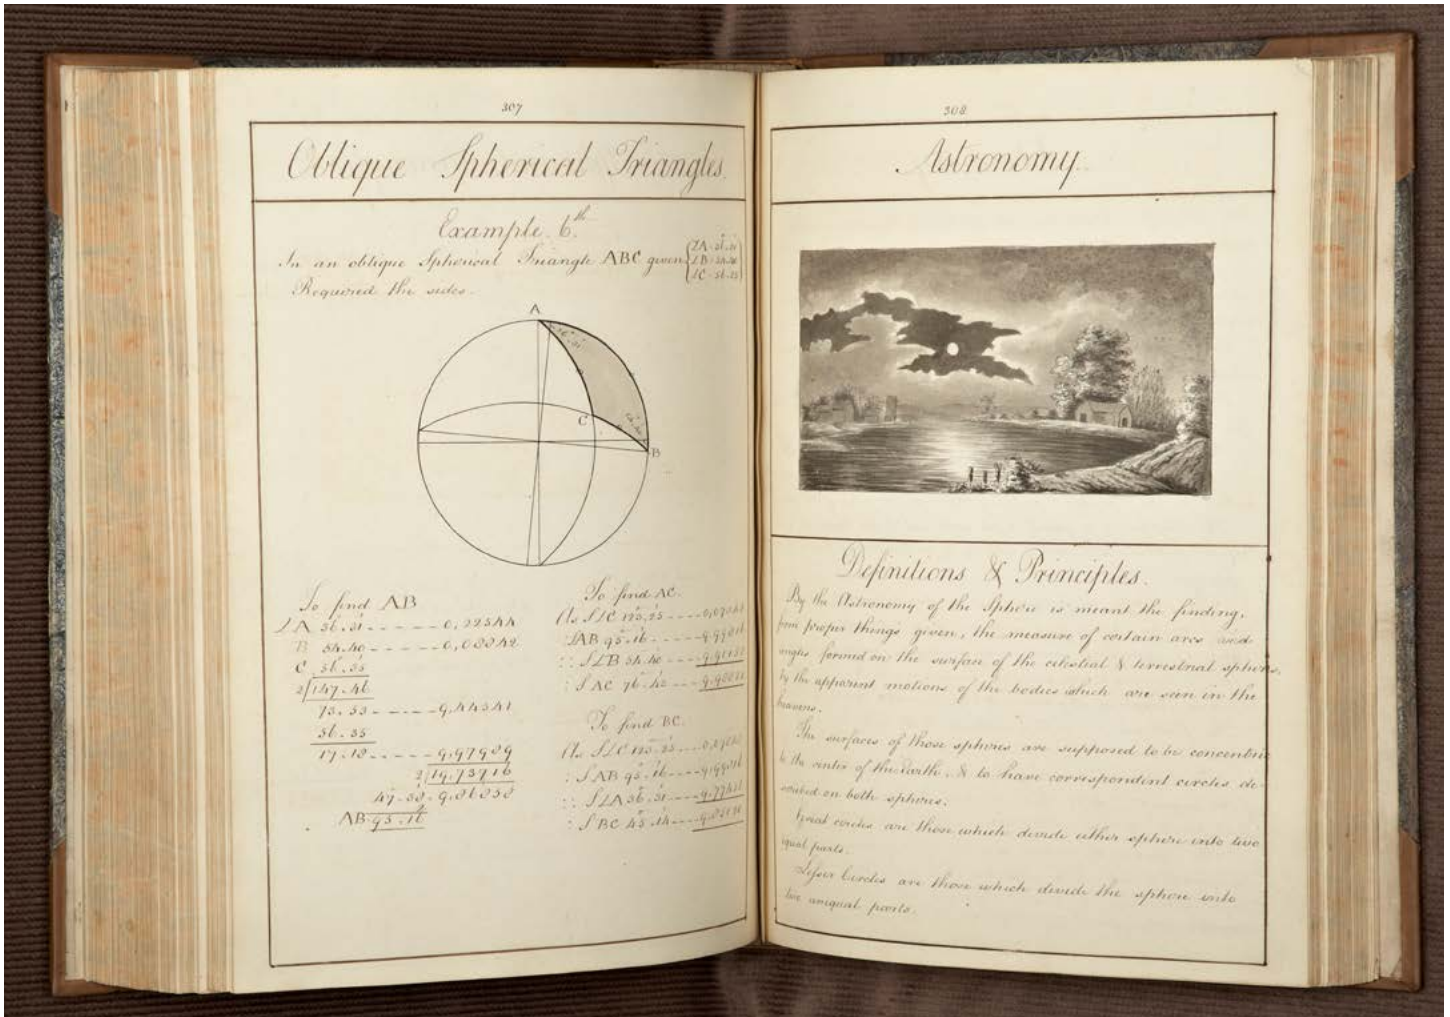 307
Oblique Spherical Triangles.
Example. 6th
In an oblique Spherical Triangle ABC given
Required the sides.
A
C
B
To find AB
∠A 36.31 - - - - - 0,22544
B 54.40 - - - - - 0,08842
C 56.35
2/147.46
73.53 - - - - - 9.44341
56.35
17.18 - - - - - 9.97989
2/19.73716
47.38 - 9.86858
2
AB 95.16
To find AC.
As S∠C 123,25 - - - -
SAB 95.16 - - - -
:: S∠B 54.40 - - - -
: S AC 76.42 - - - -
To find BC.
As S∠C 123.25 - - - -
: S AB 95.16 - - - -
:: S∠A 36.31 - - - -
: S BC 45.14 - - - -
308
Astronomy.
Definitions & Principles.
By the Astronomy of the Sphere is meant the finding,
from proper things given, the measure of certain arcs and
angles formed on the surface of the celestial & terrestrial spheres,
by the apparent motions of the bodies which are seen in the
heavens.
The surfaces of those spheres are supposed to be concentric
to the center of the Earth, & to have correspondent circles de-
scribed on both spheres.
Great circles are those which divide either sphere into two
equal parts.
Lesser Circles are those which divide the sphere into
two unequal parts.